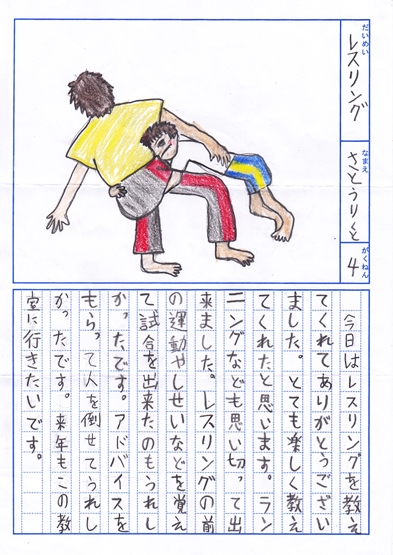 だいめい
レスリング
なまえ
さとうりくと
がくねん
4
今日はレスリングを教え
てくれてありがとうござい
ました。とても楽しく教え
てくれたと思います。ラン
ニングなども思い切って出
来ました。レスリングの前
の運動やしせいなどを覚え
て試合を出来たのもうれし
かったです。アドバイスを
もらって人を倒せてうれし
かったです。来年もこの教
室に行きたいです。